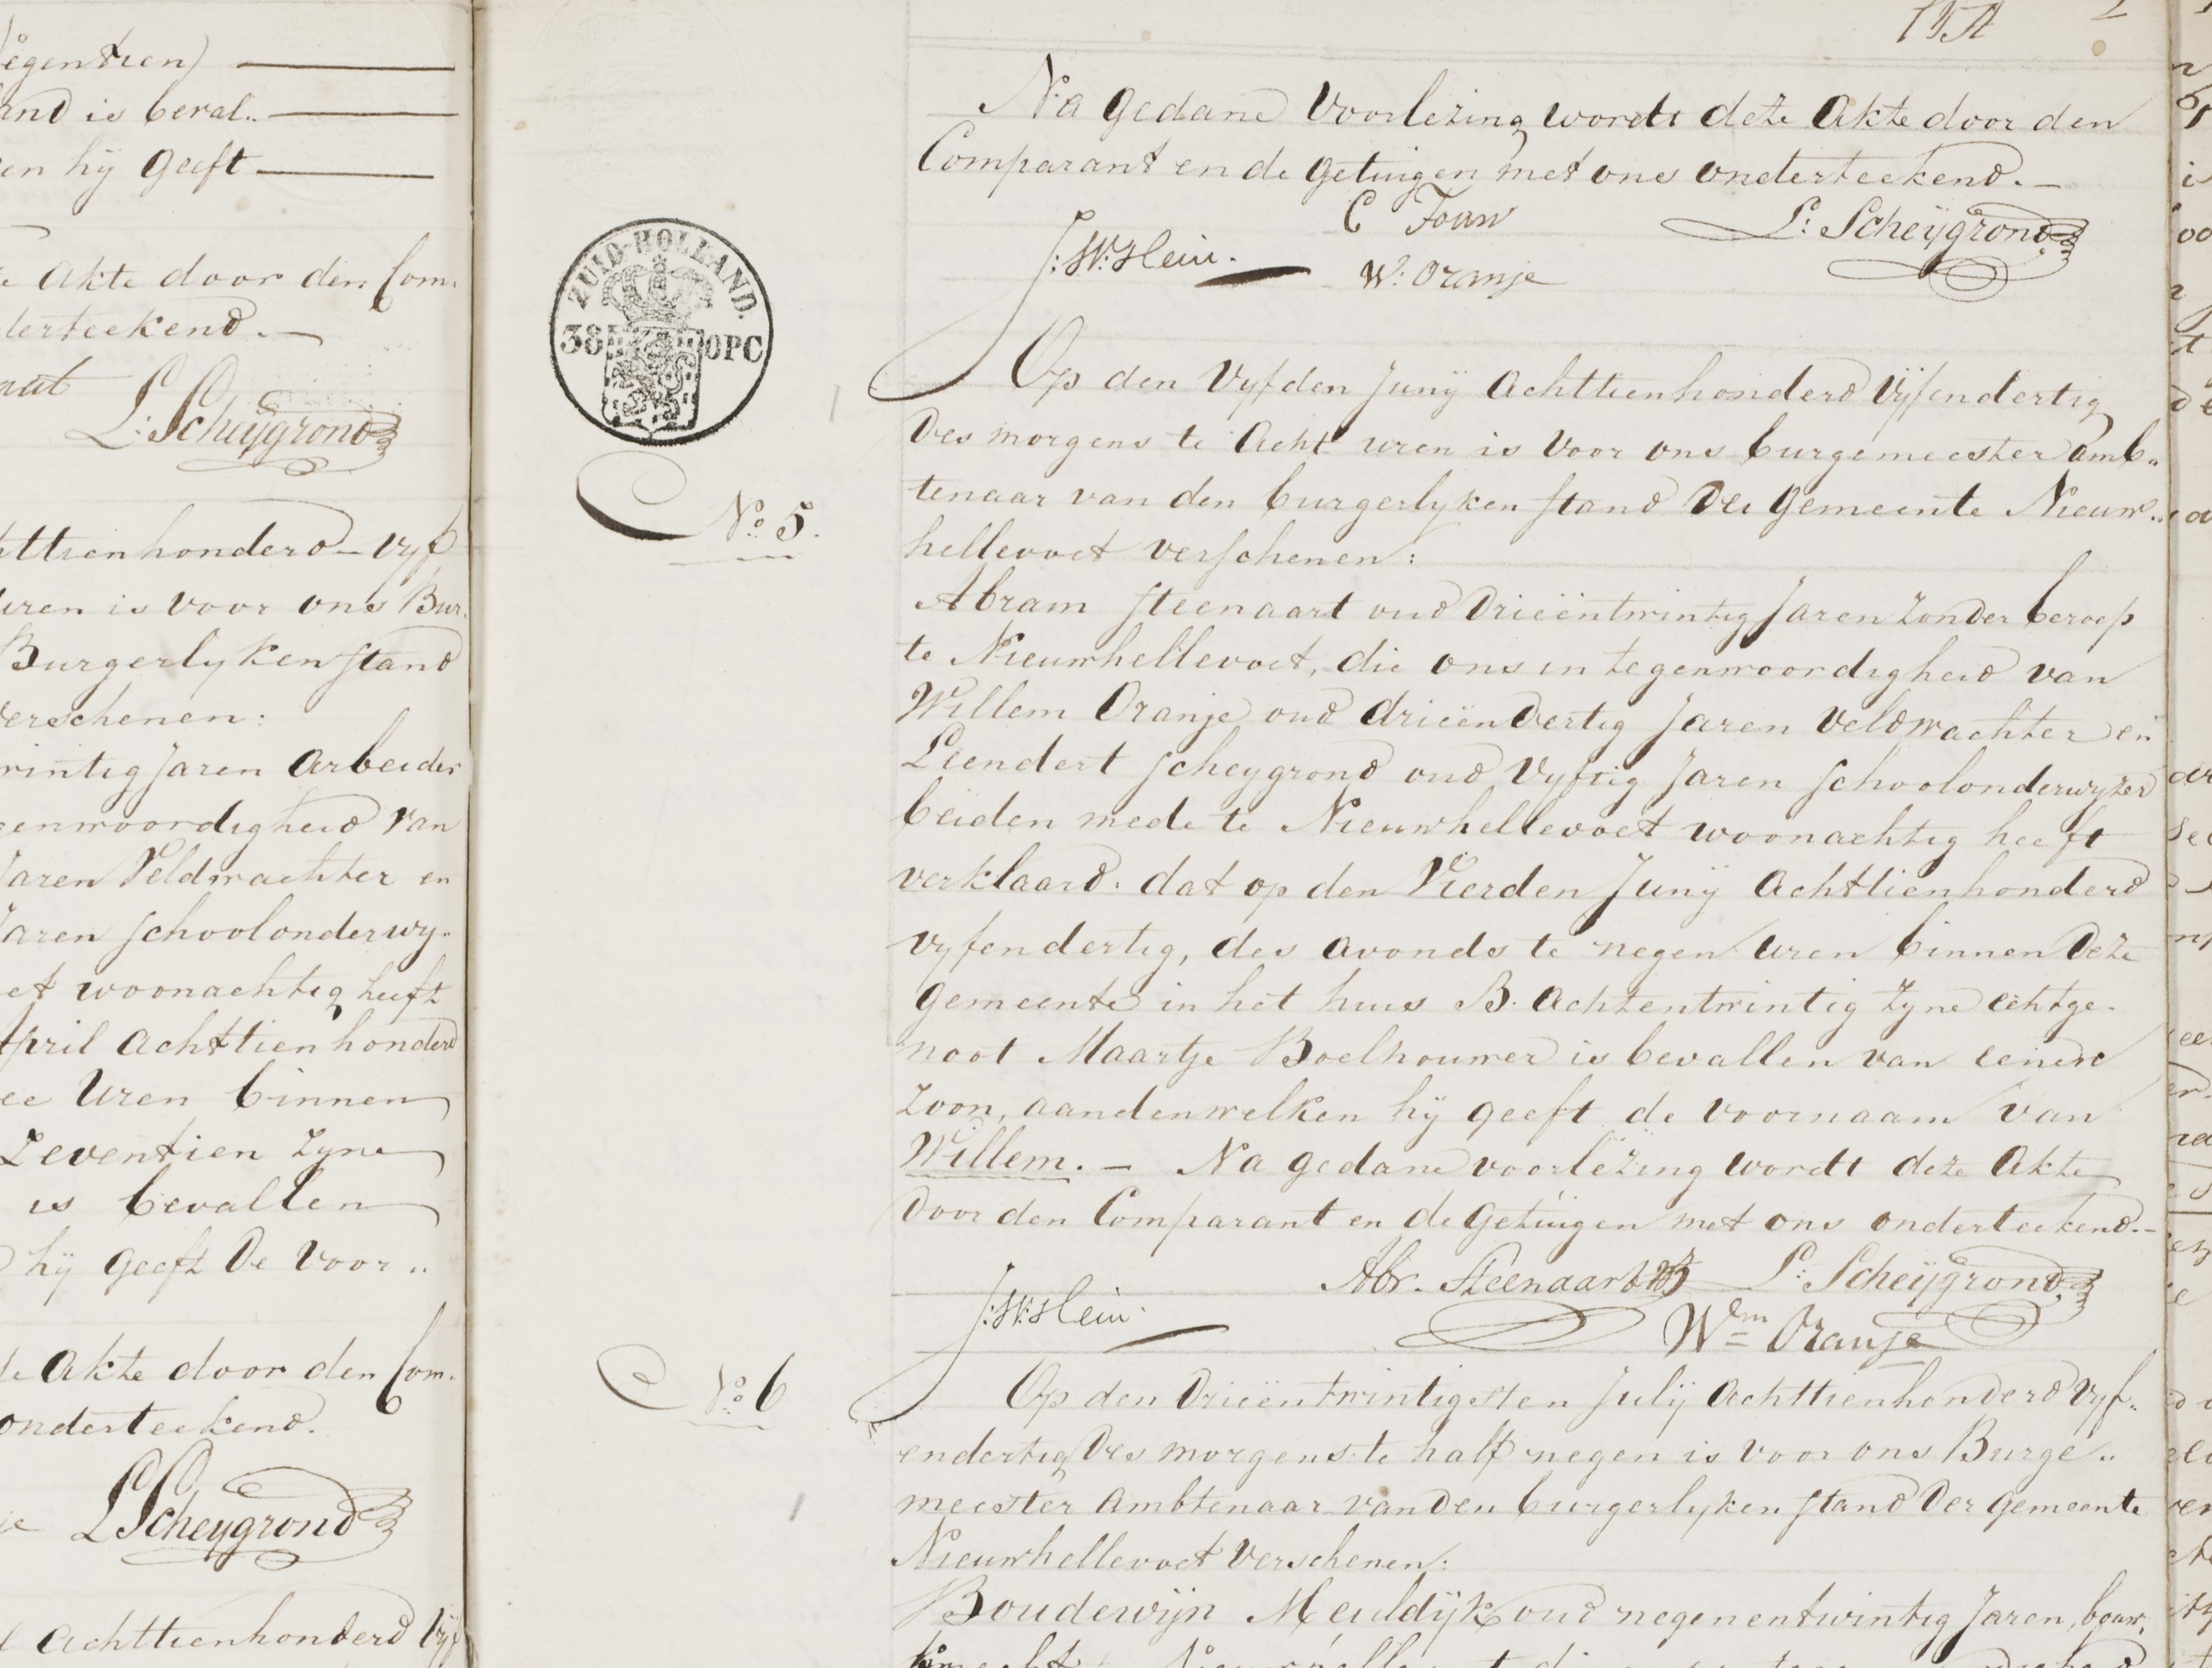 egentien)
and is beval..
en hij geeft
e Akte door den Com.
derteekend.
L: Scheijgrond
ttienhonderd vyf
uren is voor ons Bur.
Burgerlyken stand
verschenen:
wintig Jaren Arbeider
genwoordigheid van
Jaren Veldwachter en
Jaren schoolonderwy.
et woonachtig heeft
April Achttienhonderd
ee Uren binnen
Zeventien zyne
is bevallen
hij geeft de voor..
de Akte door den Com.
onderteekend.
L Scheygrond
l Achttienhonderd vijf
ZUID-HOLLAND.
38 OPC
No. 5.
No. 6
Na gedane voorlezing wordt deze Akte door den
Comparant en de getuigen met ons onderteekend.
C Fouw
L: Scheijgrond
J: W: Hein.
W: Oranje
Op den Vyfden Junij Achttienhonderd vijfendertig
des morgens te Acht uren is voor ons burgemeester amb..
tenaar van den burgerlyken stand der gemeente Nieuw..
hellevoet verschenen:
Abram Steenaart oud drieëntwintig Jaren zonder beroep
te Nieuwhellevoet, die ons in tegenwoordigheid van
Willem Oranje oud drieëndertig Jaren veldwachter en
Leendert Scheygrond oud vyftig Jaren schoolonderwyzer
beiden mede te Nieuwhellevoet woonachtig heeft
verklaard. dat op den Vierden Junij Achttienhonderd
vyfendertig, des avonds te negen uren binnen deze
gemeente in het huis B. Achtentwintig zyne echtge.
noot Maartje Boelhouwer is bevallen van eenen
Zoon, aan denwelken hij geeft de voornaam van
Willem. — Na gedane voorlezing wordt deze Akte
door den Comparant en de getuigen met ons onderteekend.-
Abr. Steenaart L: Scheijgrond
J: W: Hein.
Wm Oranje
Op den drieëntwintigsten Julij Achttienhonderd vyf..
endertig des morgens te half negen is voor ons Burge..
meester Ambtenaar van den burgerlyken stand der gemeente
Nieuwhellevoet verschenen:
Boudewijn Meuldijk oud negenentwintig Jaren, bouw.